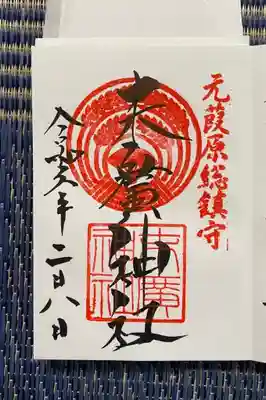 元葭原総鎮守
末廣神社
末廣神社
令和六年二月八日